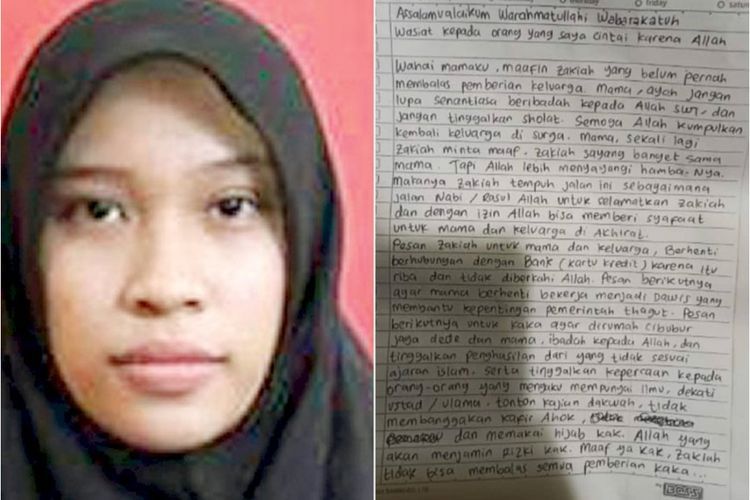 friday
Assalamualaikum Warahmatullahi Wabarakatuh
Wasiat kepada orang yang saya cintai karena Allah
Wahai mamaku, maafin zakiah yang belum pernah
membalas pemberian keluarga. Mama, ayah jangan
lupa senantiasa beribadah kepada Allah SWT, dan
jangan tinggalkan sholat. Semoga Allah kumpulkan
kembali keluarga di surga. Mama, sekali lagi
zakiah minta maaf. zakiah sayang banget sama
mama. Tapi Allah lebih menyayangi hamba-Nya.
makanya zakiah tempuh jalan ini sebagaimana
jalan Nabi / Rasul Allah untuk selamatkan zakiah
dan dengan izin Allah bisa memberi syafaat
untuk mama dan keluarga di Akhirat.
Pesan zakiah untuk mama dan keluarga, Berhenti
berhubungan dengan Bank (kartu kredit) karena itu
riba dan tidak diberkahi Allah. Pesan berikutnya
agar mama berhenti bekerja menjadi Dawis yang
membantu kepentingan pemerintah thagut. Pesan
berikutnya untuk kaka agar dirumah cibubur
jaga dede dan mama, ibadah kepada Allah, dan
tinggalkan penghasilan dari yang tidak sesuai
ajaran islam. serta tinggalkan kepercaan kepada
orang-orang yang mengaku mempunyai ilmu, dekati
ustad / ulama. tonton kajian dakwah, tidak
membanggakan kafir Ahok,
dan memakai hijab kak. Allah yang
akan menjamin Rizki kak. Maaf ya kak, zakiah
tidak bisa membalas semua pemberian kaka...
BOSS